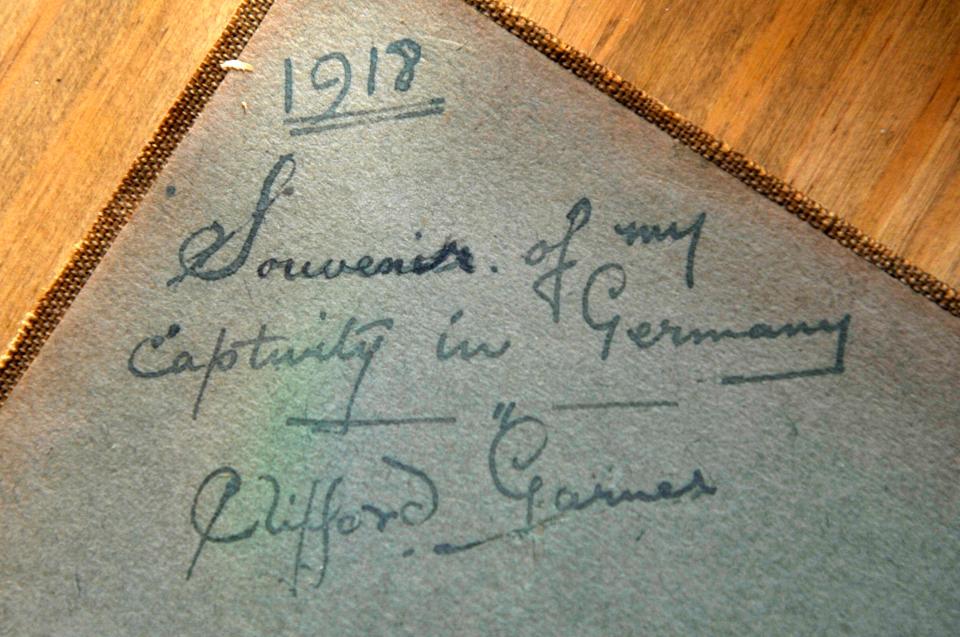 1918
Souvenir. of my
Captivity in Germany
Clifford Garner